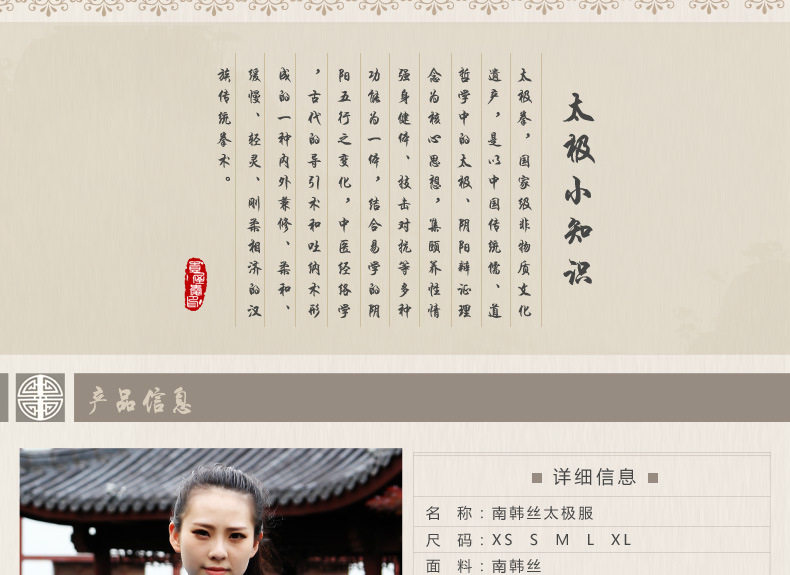 太极小知识
太极拳，国家级非物质文化
遗产，是以中国传统儒、道
哲学中的太极、阴阳辩证理
念为核心思想，集颐养性情
强身健体、技击对抗等多种
功能为一体，结合易学的阴
阳五行之变化，中医经络学
，古代的导引术和吐纳术形
成的一种内外兼修、柔和、
缓慢、轻灵、刚柔相济的汉
族传统拳术。
产品信息
详细信息
名 称：南韩丝太极服
尺 码：XS S M L XL
面 料：南韩丝